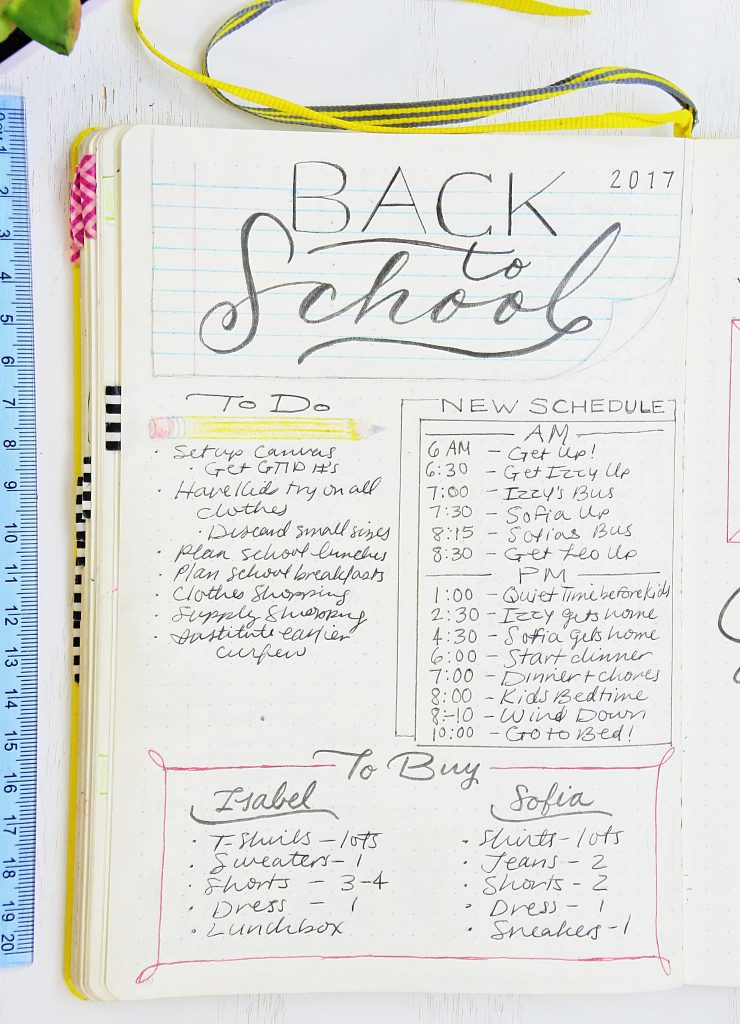 BACK
2017
to
School
To Do
· Set up Canvas
· Get GTID #'s
· Have Kids try on all
clothes
· Discard small sizes
· Plan school lunches
· Plan school breakfasts
· Clothes Shopping
· Supply Shopping
· Institute earlier
curfew
NEW SCHEDULE
AM
6 AM - Get Up!
6:30 - Get Izzy Up
7:00 - Izzy's Bus
7:30 - Sofia Up
8:15 - Sofias Bus
8:30 - Get Leo Up
PM
1:00 - Quiet Time before kids
2:30 - Izzy gets home
4:30 - Sofia gets home
6:00 - Start dinner
7:00 - Dinner + chores
8:00 - Kids Bedtime
8-10 - Wind Down
10:00 - Go to Bed!
To Buy
Isabel
· T-Shirts - lots
· Sweaters - 1
· Shorts - 3-4
· Dress - 1
· Lunchbox
Sofia
· Shirts - lots
· Jeans - 2
· Shorts - 2
· Dress - 1
· Sneakers - 1
1
2
3
4
5
6
7
8
9
10
11
12
13
14
15
16
17
18
19
20